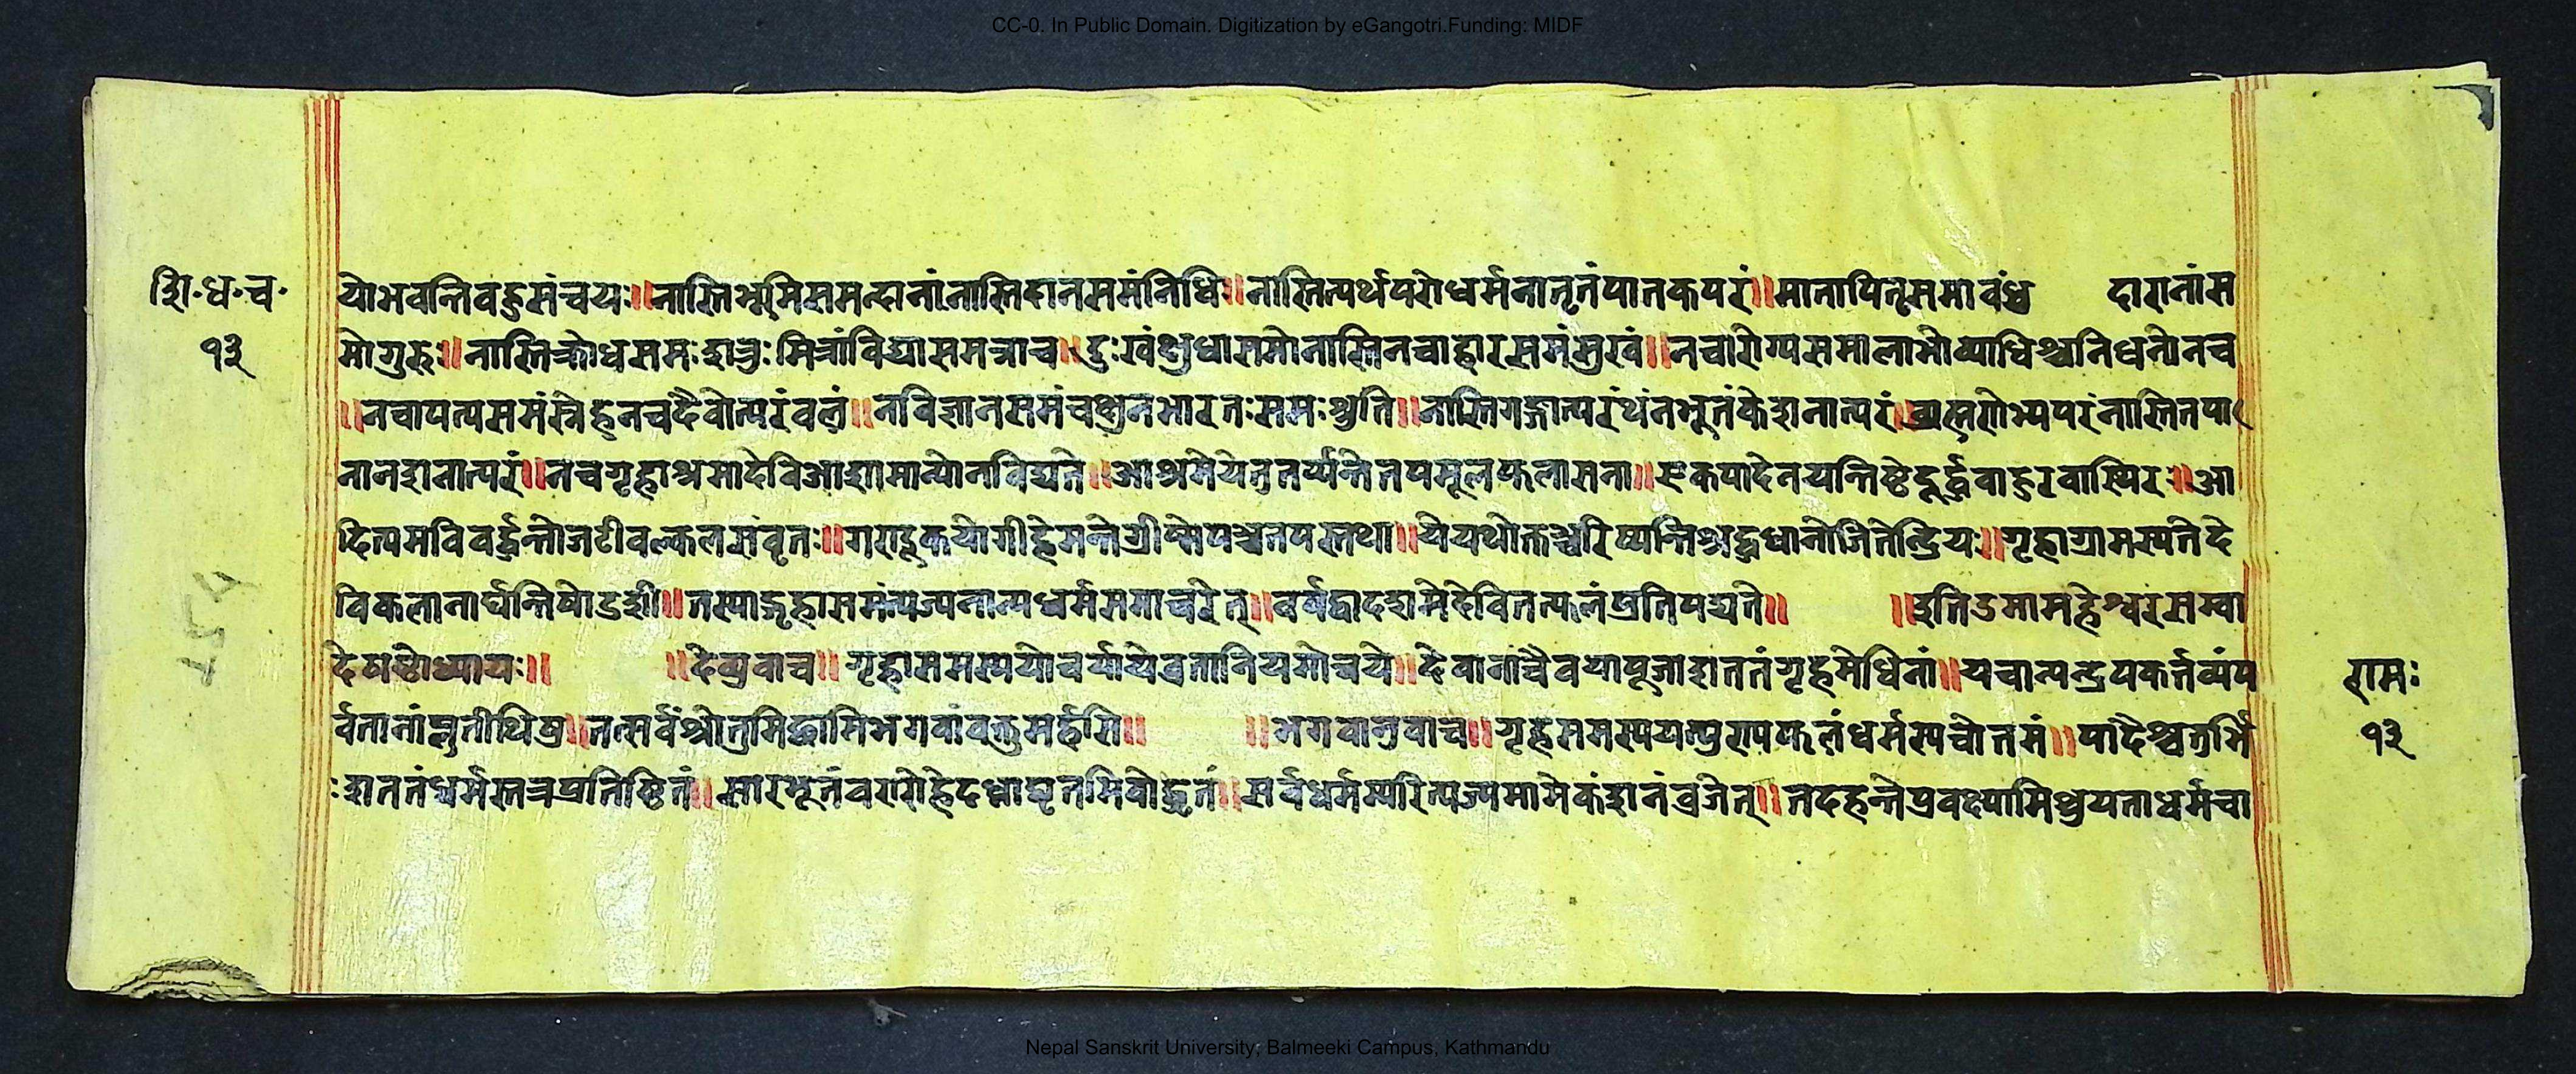 CC-0. In Public Domain. Digitization by eGangotri.Funding: MIDF
शि॰ध॰च॰
१३
योभवन्तिवहुसंचयः॥नास्तिभूमिसमन्दानांनास्तिदानसमंनिधिः॥नास्तित्यर्थपरोधर्मनानृतंपातकपरं॥मातापितृसमावंध दारानांस
मोगुरुः॥नास्तिक्रोधसमःशत्रुःमित्रांविद्यासमन्नाच॥दुःखंक्षुधासमोनास्तिनचाहारसमंसुखं॥नचारोग्यसमालाभोव्याधिश्चनिधनोनच
॥नचापत्यसमंस्नेहनचदैवोत्परंवलं॥नविज्ञानसमंचक्षुनभारतःसमःश्रुति॥नास्तिगङ्गात्परंथंनभूतंकेशनात्परं॥ नास्तितपा
नानशनात्परं॥नचगृहाश्रमादेविआश्रामान्योनविद्यते॥आश्रमेयेनुतर्प्यन्तेतपमूलफलासना॥एकपादेनयन्तिष्टेदूर्द्धवाहुरवास्थिरः॥आ
दित्यमविवर्द्धन्तोजटीवल्कलसंवृतः॥ ग्रीष्मेपञ्चतपस्तथा॥येयथोक्तञ्चरिष्यन्तिश्रद्धधानोजितेन्द्रियः॥गृहाग्रामस्यतेदे
विकलानार्घन्तिषोडशी॥तस्याद्गृहासमंत्यज्यनान्यधर्मसमाचरेत्॥वर्षद्वादशमेदेवितत्फलंप्रतिपद्यते॥ ॥इतिउमामहेश्वरसम्वा
देषष्ठोध्यायः॥ ॥देव्युवाच॥गृहासमस्ययोचर्याचेव्रतानियमोच्चये॥देवानांचैवयापूजाशततंगृहमेधिनां॥यचान्यन्द्रपकर्त्तव्यंप
र्वतानांसुतीथिषु॥तत्सर्वंश्रोतुमिच्छामिभगवांवक्तुमर्हसि॥ ॥भगवानुवाच॥गृहसमस्ययत्पुरापफलंधर्मस्यचोतमं॥पादैश्चतुर्भि
ःशततंधर्मस्तत्रप्रतिष्ठितं॥सारभूतंवरारोहेदध्नाघृतमिवोद्धृतं॥सर्वधर्मम्परित्यज्यमामेकंशानंव्रजेत्॥तदहन्तेप्रवक्ष्यामिश्रुयताधर्मचा
रामः
१३
Nepal Sanskrit University, Balmeeki Campus, Kathmandu